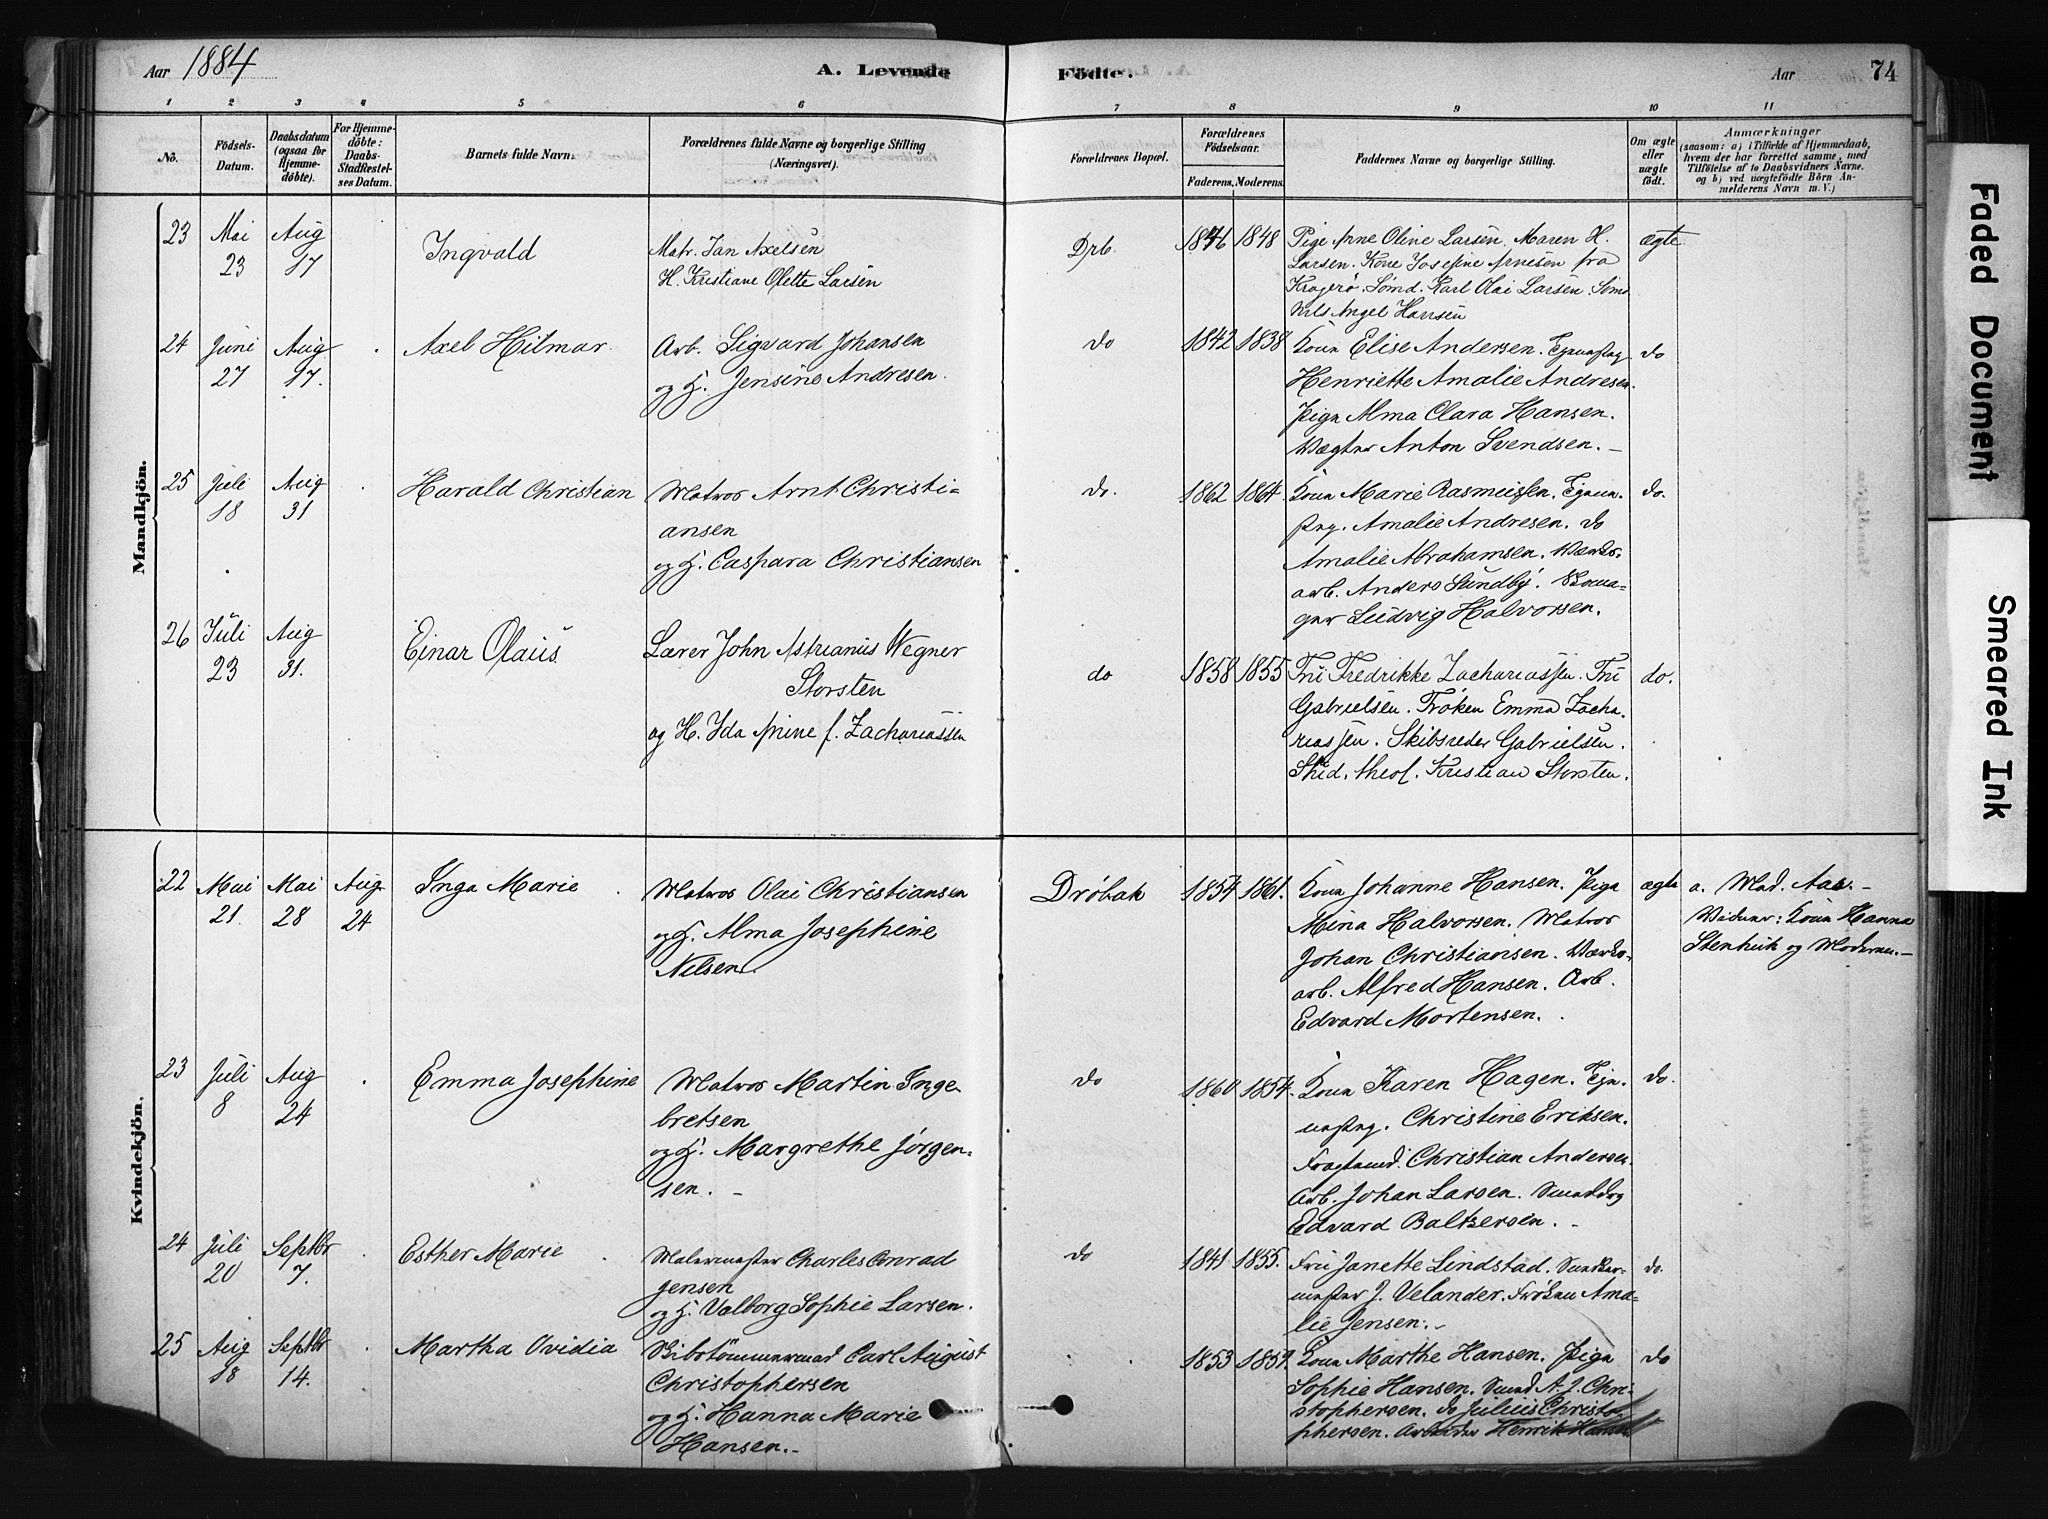 Aar 1884
A. Levende
Födte.
Aar
74
1 2 3 4 5 6 7 8 9 10 11
No.
Födsels-
Datum.
Daabsdatum
(ogsaa for
Hjemme-
döbte).
For Hjemme-
döbte:
Daabs-
Stadfæstel-
ses Datum.
Barnets fulde Navn.
Forældrenes fulde Navne og borgerlige Stilling
(Næringsvei).
Forældrenes Bopæl.
Forældrenes
Födselsaar.
Faderens. Moderens.
Faddernes Navne og borgerlige Stilling.
Om ægte
eller
uægte
födt.
Anmærkninger
(saasom: a) i Tilfælde af Hjemmedaab,
hvem der har forrettet samme, med
Tilföielse af to Daabsvidners Navne,
og b) ved uægtefödte Börn An-
melderens Navn m. V.)
Mandkjön.
23
Mai
23
Aug
17
Ingvald
Matr. Jan Axelsen
H. Kristiane Olette Larsen
Drb.
1846 1848
Pige Anne Oline Larsen. Maren H.
Larsen. Kone Josefine Arnesen fra
Kragerø. Sømd. Karl Olai Larsen. Sømd
Nils Angel Hansen
ægte
24
Juni
27
Aug
17.
Axel Hilmar
Arb. Sigvard Johansen
og H. Jensine Andresen.
do
1842 1838
Kone Elise Andersen.
Henriette Amalie Andresen.
Pige Alma Clara Hansen.
Vægter Anton Svendsen. –
do
25
Juli
18
Aug
31
Harald Christian
Matros Arnt Christi-
ansen
og H. Caspara Christiansen
do.
1862 1864.
Kone Marie Rasmussen.
Amalie Andresen. do
Amalie Abrahamsen. Værks-
arb. Anders Sundby.
Ludvig Halvorsen.
do.
26
Juli
23
Aug
31.
Einar Olaus
Lærer John Astrianus Wegner
Storsten
og H. Ida Anine f. Zachariassen
do
1858 1855
Fru Fredrikke Zachariassen. Fru
Gabrielsen. Frøken Emma Zacha-
riassen. Skibsreder Gabrielsen.
Stud. theol. Kristian Storsten.
do.
Kvindekjön.
22
Mai
21.
Mai
28
Aug
24
Inga Marie
Matros Olai Christiansen
og H. Alma Josephine
Nilsen.
Drøbak
1854 1861.
Kone Johanne Hansen. Pige
Mina Halvorsen. Matros
Johan Christiansen. Værks-
arb. Alfred Hansen. Arb.
Edvard Mortensen.
ægte
a. Mad. Aas. –
Vidner: Kone Hanna
Stenhuk og Moderen. –
23
Juli
8
Aug
24
Emma Josephine
Matros Martin Inge-
bretsen
og H. Margrethe Jørgen-
sen. –
do
1860 1854.
Kone Karen Hagen.
Christine Eriksen.
Christian Andersen.
Arb. Johan Larsen.
Edvard Baltzersen. –
do.
24
Juli
20
Septbr
7.
Esther Marie
Malermester Charles Conrad
Jensen
og H. Valborg Sophie Larsen.
do
1841 1855.
Fru Janette Lindstad.
mester J. Velander. Frøken Ama-
lie Jensen. –
do.
25
Aug
18
Septbr
14.
Martha Ovidia
Skibstømmermand Carl August
Christophersen
og H. Hanna Marie
Hansen. –
1853 1859.
Kone Marthe Hansen. Pige
Sophie Hansen. A. J. Chri-
stophersen. do Julius Christo-
phersen. Arbeider Henrik Hansen
do
Faded Document
Smeared Ink